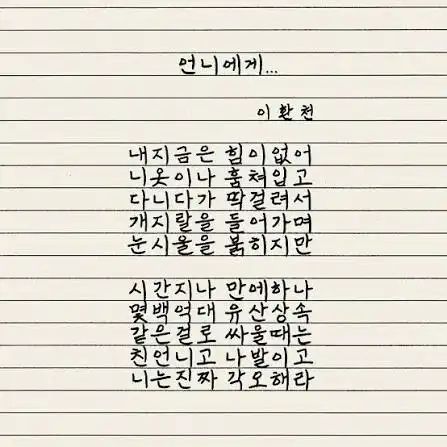 언니에게...
이환천
내지금은 힘이없어
니옷이나 훔쳐입고
다니다가 딱걸려서
개지랄을 들어가며
눈시울을 붉히지만
시간지나 만에하나
몇백억대 유산상속
같은걸로 싸울때는
친언니고 나발이고
니는진짜 각오해라